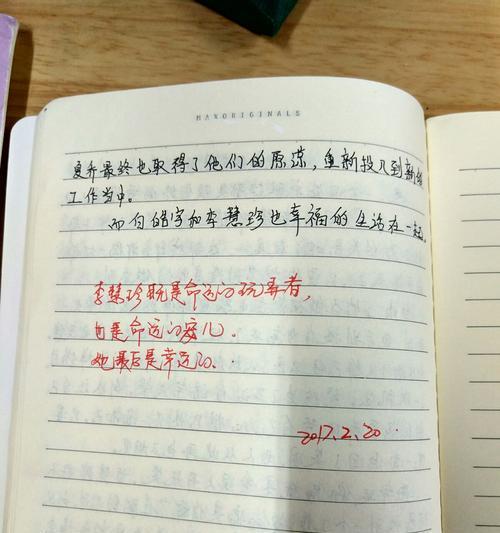 MAXORIGINALS
夏乔最终也取得了他们的原谅，重新投入到新的
工作当中。
而白皓宇和李慧珍也幸福的生活在一起。
李慧珍既是命运的玩弄者，
也是命运的宠儿.
她最后是幸运的.
2017.2.20